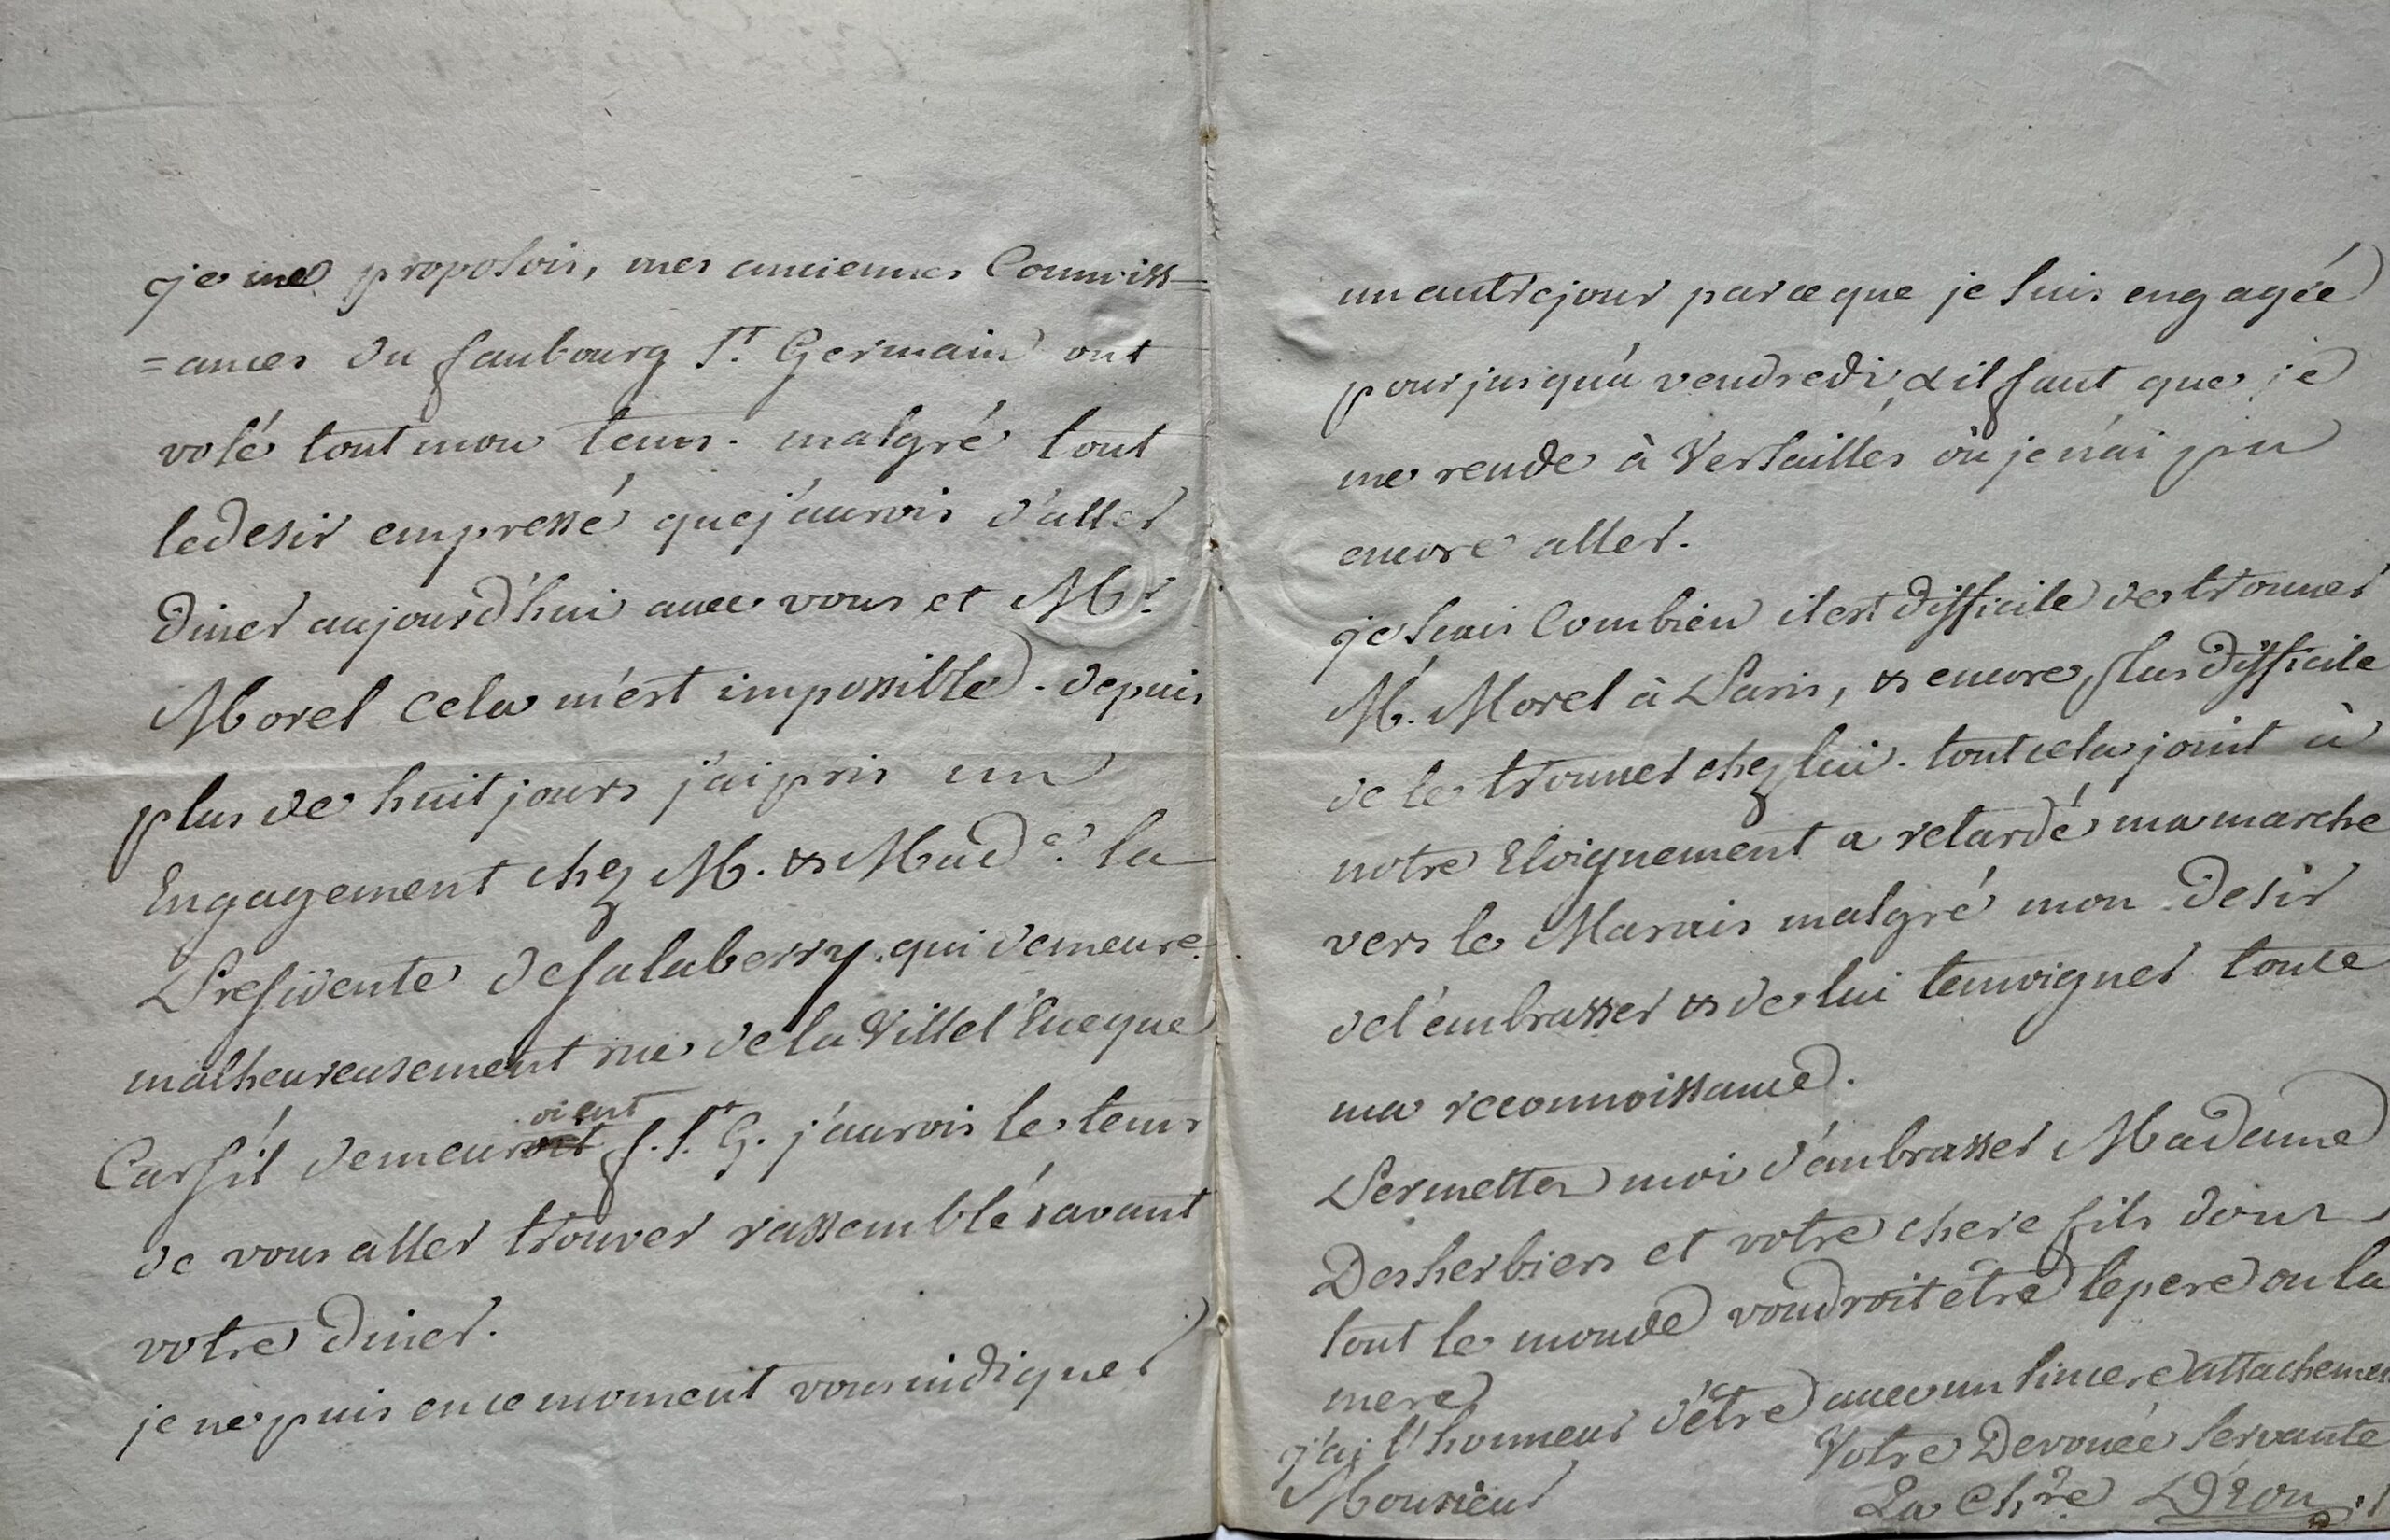 je me proposois, mes anciennes Connoiss=
=ances du faubourg St. Germain ont
volé tout mon tems. malgré tout
le desir empressé que j'aurois d'aller
diner aujourd'hui avec vous et Mr.
Morel cela m'est impossible. depuis
plus de huit jours j'ai pris un
Engagement chez M. & Made. la
Presidente de Salaberry qui demeure
malheureusement rue de la Ville l'Eveque
Car s'il demeuroient f. St. G. j'aurois le tems
de vous aller trouver rassemblés avant
votre diner.
je ne puis en ce moment vous indiquer
un autre jour parceque je suis engagée
pour jusqu'à vendredi, & il faut que je
me rende à Versailles où je n'ai pu
encore aller.
je scais Combien il est difficile de trouver
M. Morel à Paris, & encore plus difficile
de le trouver chez lui. tout cela joint à
notre Eloignement a retardé ma marche
vers le Marais malgré mon desir
de l'embrasser & de lui temoigner toute
ma reconnoissance.
Permettez moi d'embrasser Madame
Desherbiers et votre chere fils dont
tout le monde voudroit etre le pere ou la
mere
j'ai l'honneur d'être avec un sincere attachement
Monsieur
Votre Devouée servante
La Chre. D'Eon